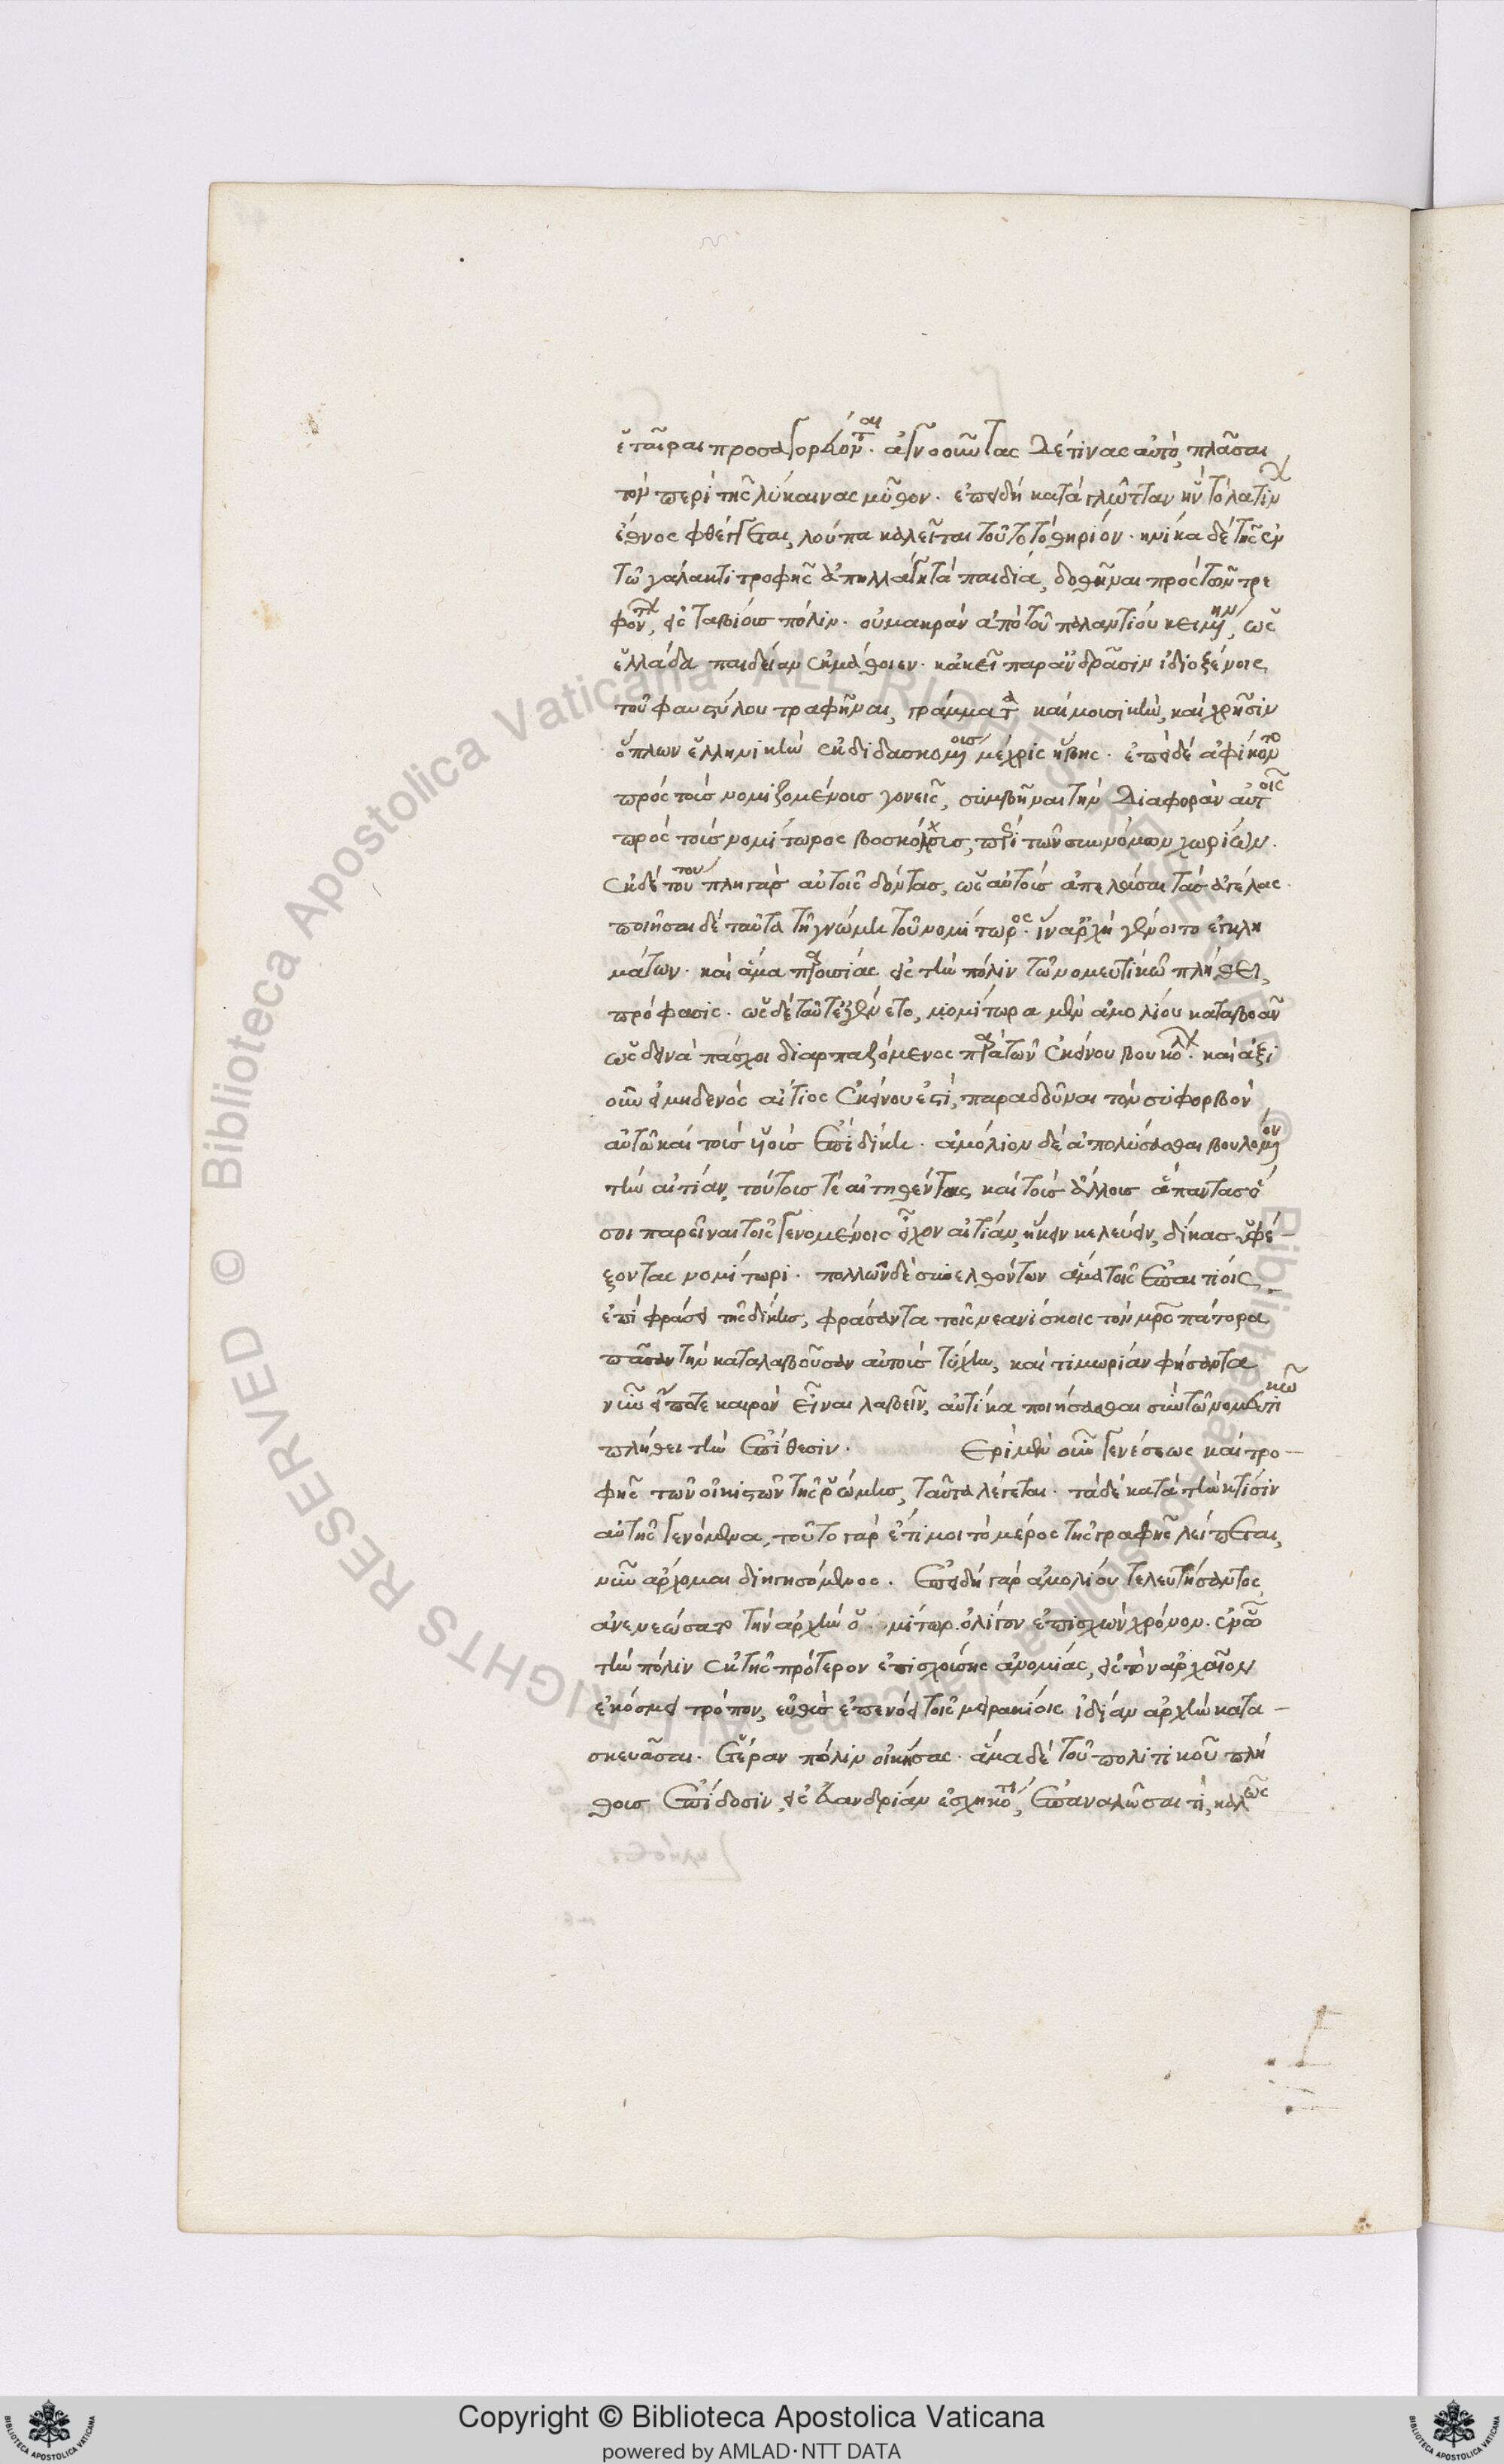 ἑταῖραι προσαγορεύονται. ἀγνοοῦντας δέ τινας αὐτὸ, πλάσαι
τὸν περὶ τῆς λυκαίνης μῦθον. ἐπειδὴ κατὰ γλῶτταν ἣν τὸ λατίνων
ἔθνος φθέγγεται, λούπα καλεῖται τοῦτο τὸ θηρίον. ἡνίκα δὲ τῆς ἐν
τῶ γάλακτι τροφῆς ἀπηλλάγη τὰ παιδία, δοθῆναι πρὸς τῶν τρε
φόντων, εἰς γαβίους πόλιν. οὐ μακρὰν ἀπὸ τοῦ παλαντίου κειμένην, ὡς
ἑλλάδα παιδείαν ἐκμάθοιεν. κἀκεῖ παρ' ἀνδράσιν ἰδιοξένοις
τοῦ φαυστύλου τραφῆναι, γράμματα καὶ μουσικὴν, καὶ χρῆσιν
ὅπλων ἑλληνικὴν ἐκδιδασκομένους μέχρις ἥβης. ἐπεὶ δὲ ἀφίκοντο
πρὸς τοὺς νομιζομένους γονεῖς, συμβῆναι τὴν διαφορὰν αὐτοῖς
πρὸς τοὺς νομίτωρος βοσκοὺς, περὶ τῶν συννόμων χωρίων.
ἐκ δὲ τούτου πληγὰς αὐτοῖς δόντας, ὡς αὐτοὺς ἀπελάσαι τὰς ἀγέλας.
ποιῆσαι δὲ ταῦτα τῇ γνώμῃ τοῦ νομίτωρος. ἵν' ἀρχὴ γένοιτο ἐγκλη
μάτων. καὶ ἅμα παρουσίας εἰς τὴν πόλιν τῶ νομευτικῶ πλήθει,
πρόφασις. ὡς δὲ ταῦτ' ἐγένετο, νομίτωρα μὲν ἀμολίου καταβοᾶν
ὡς δεινὰ πάσχοι διαρπαζόμενος παρὰ τῶν ἐκείνου βουκόλων. καὶ ἀξι
οῦν εἰ μηδενὸς αἴτιος ἐκεῖνου ἐστὶ, παραδοῦναι τὸν συφορβὸν
αὐτῶ καὶ τοὺς υἱοὺς ἐπὶ δίκῃ. ἀμόλιον δὲ ἀπολύσασθαι βουλόμενον
τὴν αἰτίαν, τούτους τε αἰτηθέντας καὶ τοὺς ἄλλους ἅπαντας ὅ
σοι παρεῖναι τοῖς γενομένοις εἶχον αἰτίαν, ἥκειν κελεύειν, δίκας ὑφέ-
ξοντας νομίτωρι. πολλῶν δὲ συνελθόντων ἅμα τοῖς ἐπαιτίοις
ἐπὶ φράσει τῆς δίκης, φράσαντα τοῖς νεανίσκοις τὸν μητροπάτορα
πᾶσαν τὴν καταλαβοῦσαν αὐτοὺς τύχην, καὶ τιμωρίαν φήσαντα
νῦν εἴποτε καιρὸν εἶναι λαβεῖν, αὐτίκα ποιήσασθαι σὺν τῶ νομευτικῶ
πλήθει τὴν ἐπίθεσιν. Ερὶ μὲν οὖν γενέσεως καὶ τρο-
φῆς τῶν οἰκιστῶν τῆς ῥώμης, ταῦτα λέγεται. τὰ δὲ κατὰ τὴν κτίσιν
αὐτῆς γενόμενα, τοῦτο γὰρ ἔτι μοι τὸ μέρος τῆς γραφῆς λείπεται,
νῦν ἄρχομαι διηγησόμενος. Ἐπειδὴ γὰρ ἀμολίου τελευτήσαντος
ἀνενεώσατο τὴν ἀρχὴν ὁ μίτωρ. ὀλίγον ἐπισχὼν χρόνον. ἐν ᾧ
τὴν πόλιν ἐκ τῆς πρότερον ἐπισχούσης ἀνομίας, εἰς τὸν ἀρχαῖον
ἐκόσμει τρόπον, εὐθὺς ἐπενόει τοῖς μειρακίοις ἰδίαν ἀρχὴν κατα-
σκευᾶσαι. ἑτέραν πόλιν οἰκήσας. ἅμα δὲ τοῦ πολιτικοῦ πλή
θους ἐπίδοσιν, εἰς εὐανδρίαν ἐσχηκότος, ἐπαναλῶσαι τι, καλῶς